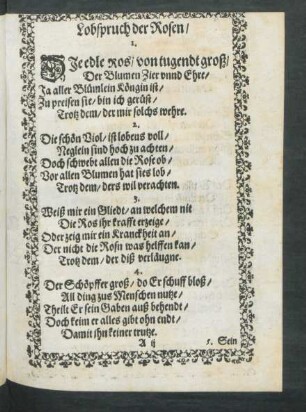 Lobspruch der Rosen/
1.
DJe edle Ros/ von tugendt groß/
Der Blumen Zier vnnd Ehre/
Ja aller Blümlein Köngin ist/
Zu preisen sie/ bin ich gerüst/
Trotz dem/ der mir solchs wehre.
2.
Die schön Viol/ ist lobens voll/
Neglein sind hoch zu achten/
Doch schwebt allen die Rose ob/
Vor allen Blumen hat sies lob/
Trotz dem/ ders wil verachten.
3.
Weiß mir ein Gliedt/ an welchem nit
Die Ros ihr krafft erzeige/
Oder zeig mir ein Kranckheit an/
Der nicht die Rosn was helffen kan/
Trotz dem/ der diß verläugne.
4.
Der Schöpffer groß/ do Er schuff bloß/
All ding zus Menschen nutze/
Theilt Er sein Gaben auß behendt/
Doch keim er alles gibt ohn endt/
Damit ihn keiner trutze.
A ij
5. Sein